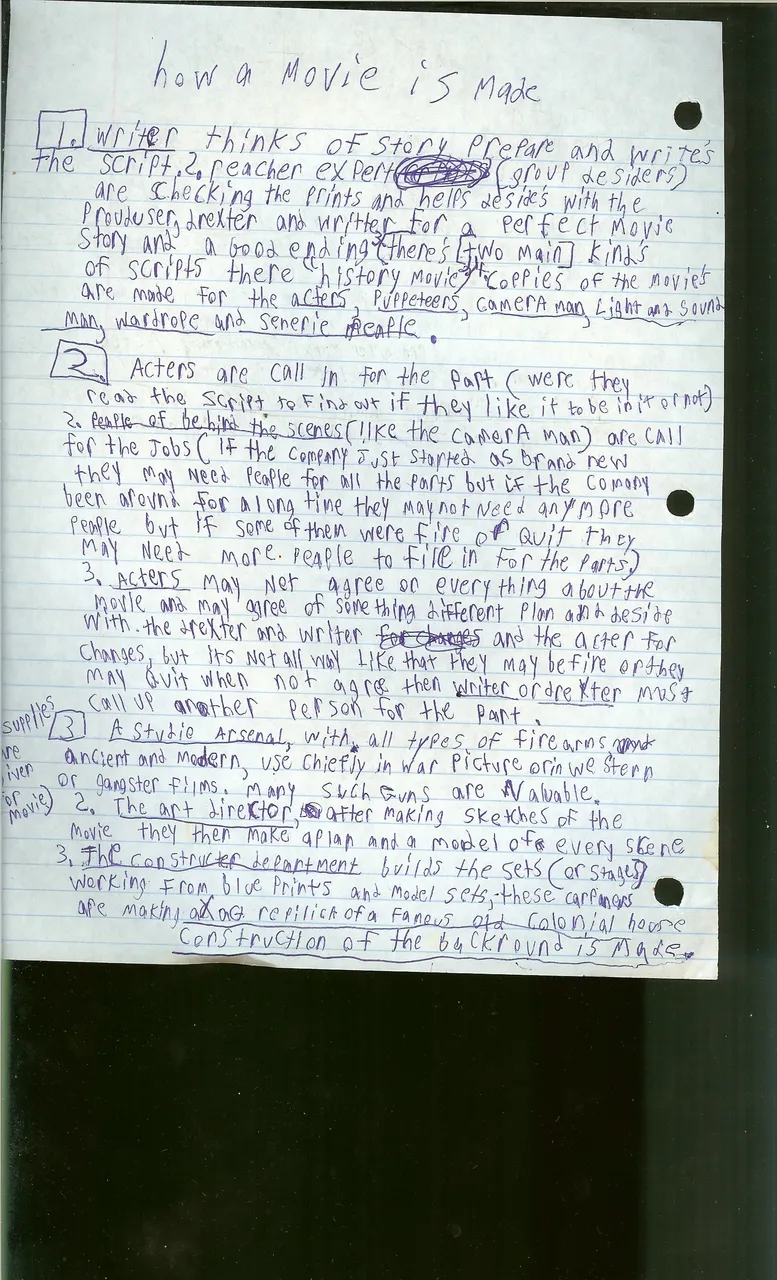 how a movie is made
1. writer thinks of story prepare and write's
the script. 2. reacher expert (group desiders)
are checking the prints and helps desides with the
Prouduser, drexter and writter for a perfect movie
story and a good ending (there's [two main] kind's
of scripts there "history movie)" Coppies of the movie's
are made for the acters, Puppeteers, camerA man, Light and sound
man, wardrope and senerie people.
2. Acters are call in for the part (were they
read the script to find out if they like it to be in it or not)
2. People of behind the scenes (like the camerA man) are call
for the jobs (if the company just started as brand new
they may need people for all the parts but if the comony
been around for a long time they may not need any more
people but if some of them were fire or quit they
may need more. people to fill in for the parts.)
3. Acters may not agree or every thing about the
movie and may agree of something different plan and deside
with the drexter and writer for changes and the acter for
changes, but its not all way like that they may be fire or they
may quit when not agree then writer or drexter must
call up another person for the part.
supplies
3 A studie Arsenal, with all types of firearms
ancient and modern, use chiefly in war picture or in western
or gangster films. many such guns are valuable.
or
movie) 2. The art director, after making sketches of the
movie they then make a plan and a model of every skene
3. The constructer department builds the sets (or stages)
working from blue prints and model sets, these carpaners
are making axact replilick of a fameus old colonial house
construction of the backround is made.